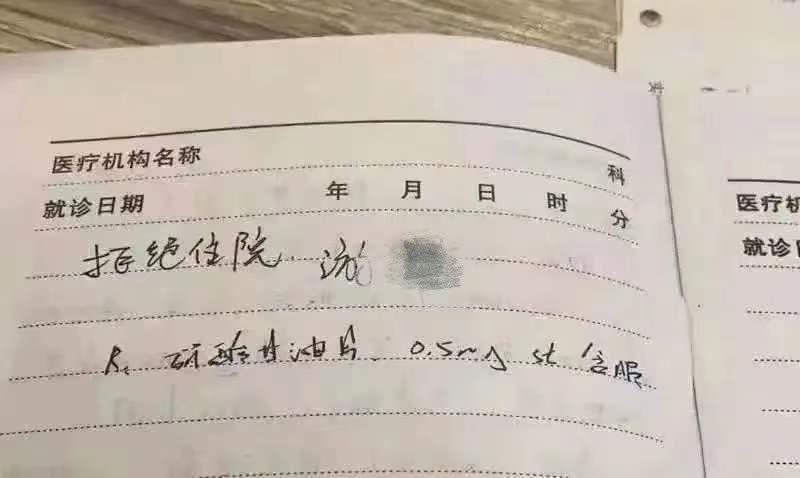 医疗机构名称 科
就诊日期 年 月 日 时 分
拒绝住院
R: 硝酸甘油片 0.5mg st 含服
医疗机
就诊日